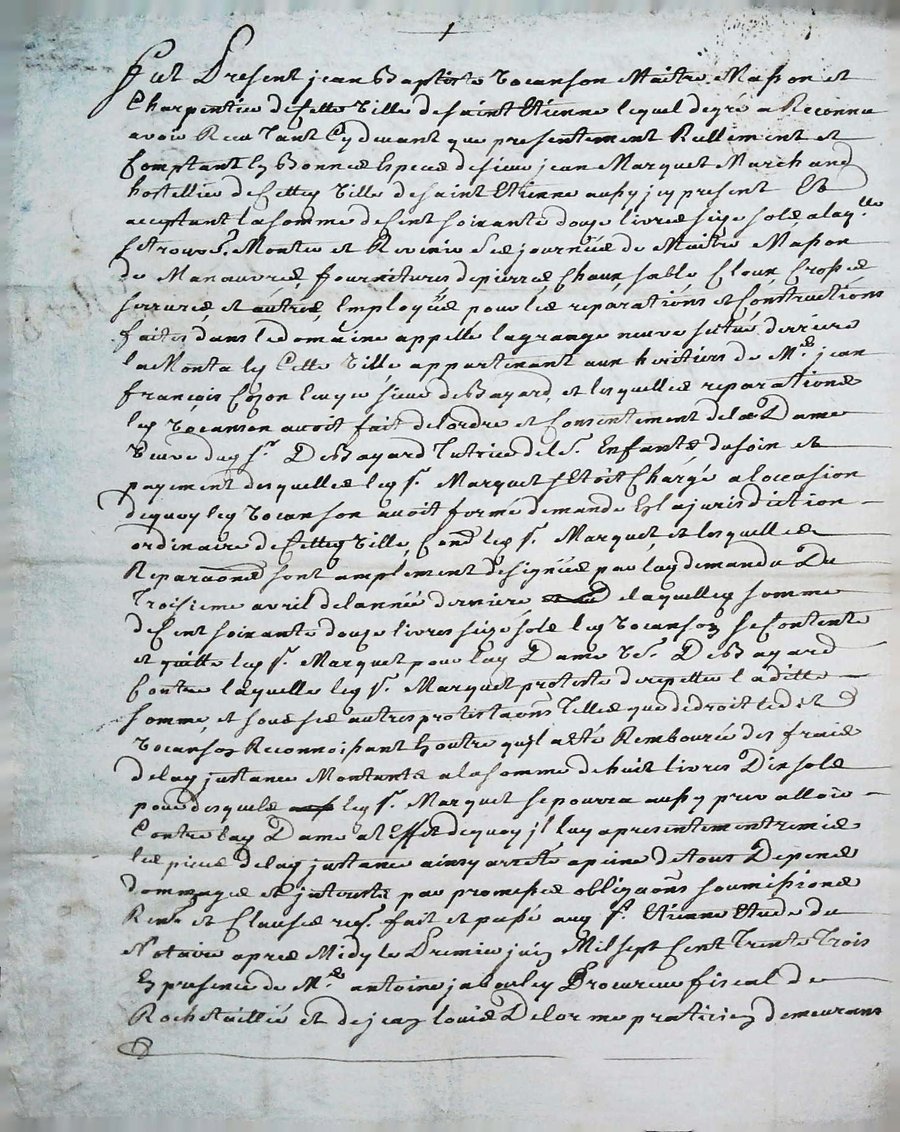 Fut Present jean Baptiste Vocanson Maitre Masson et
Charpentier de Cette Ville de saint Etienne lequel de gré a Reconnu
avoir Receu Tant Cydevant que presentement Rellement et
Comptant En Bonnes Especes de sieur jean Marquet Marchand
hostellier de Cettes Ville de saint Etienne aussy jcy present Et
acceptant la somme de Cent soixante douze livres seize sols a laqlle
se trouve Monter et Revenir Les journées de Maitre Masson
de Manauvres, ffournitures de pierres Chaux, sable, Cloux, Crosses
serrures et autres, Employées pour les reparations et Constructions
faites dans le domaine appellé la grange neuve scitué derriere
la Monta les Cette Ville appartenant aux heritiers de Me. jean
françois Cozon sieur de Bayard et lesquelles reparations
led Vocanson avoit fait de lordre et Consentement de la Dame
Veuve dud sr. De Bayard Tutrice de ls. Enfants du soin et
payement desquelles led sr. Marquet sEtoit Chargé a loccasion
dequoy led Vocanson avoit formé demande En la jurisdiction
ordinaire de Cettes Ville, Conē led sr. Marquet et lesquelles
Reparaōns sont amplement designées par lad demande Du
Troisieme avril de lannée derniere de laquelle somme
de Cent soixante douze livres seize sols led Vocanson se Contente
et quitte led sr. Marquet pour lad Dame Ve. De Bayard
Contre laquelle led sr. Marquet proteste de repetter laditte
somme, et sous ses autres protestaōns Telles que de droit led et
Vocanson Reconnoissant En outre quil a eté Remboursé des frais
de lad jnstance Montants a la somme de huit livres Dix sols
pour desquels led sr. Marquet se pourra aussy prevalloir
Contre lad Dame a lEffet dequoy jl luy a presentement remis
les pieces de lad jnstance ainsy arreté a peine de tous Depens
dommages et jnterests par promesses obligaōns soumissions
Ren. et Clauses req. fait et passé aud st. Etienne Etude du
Notaire apres Midy le Premier juin Mil sept Cent Trente Trois
En presence de Me. antoine jabouley Procureur fiscal de
Rochetaillée et de jean louis Delorme praticien demeurans